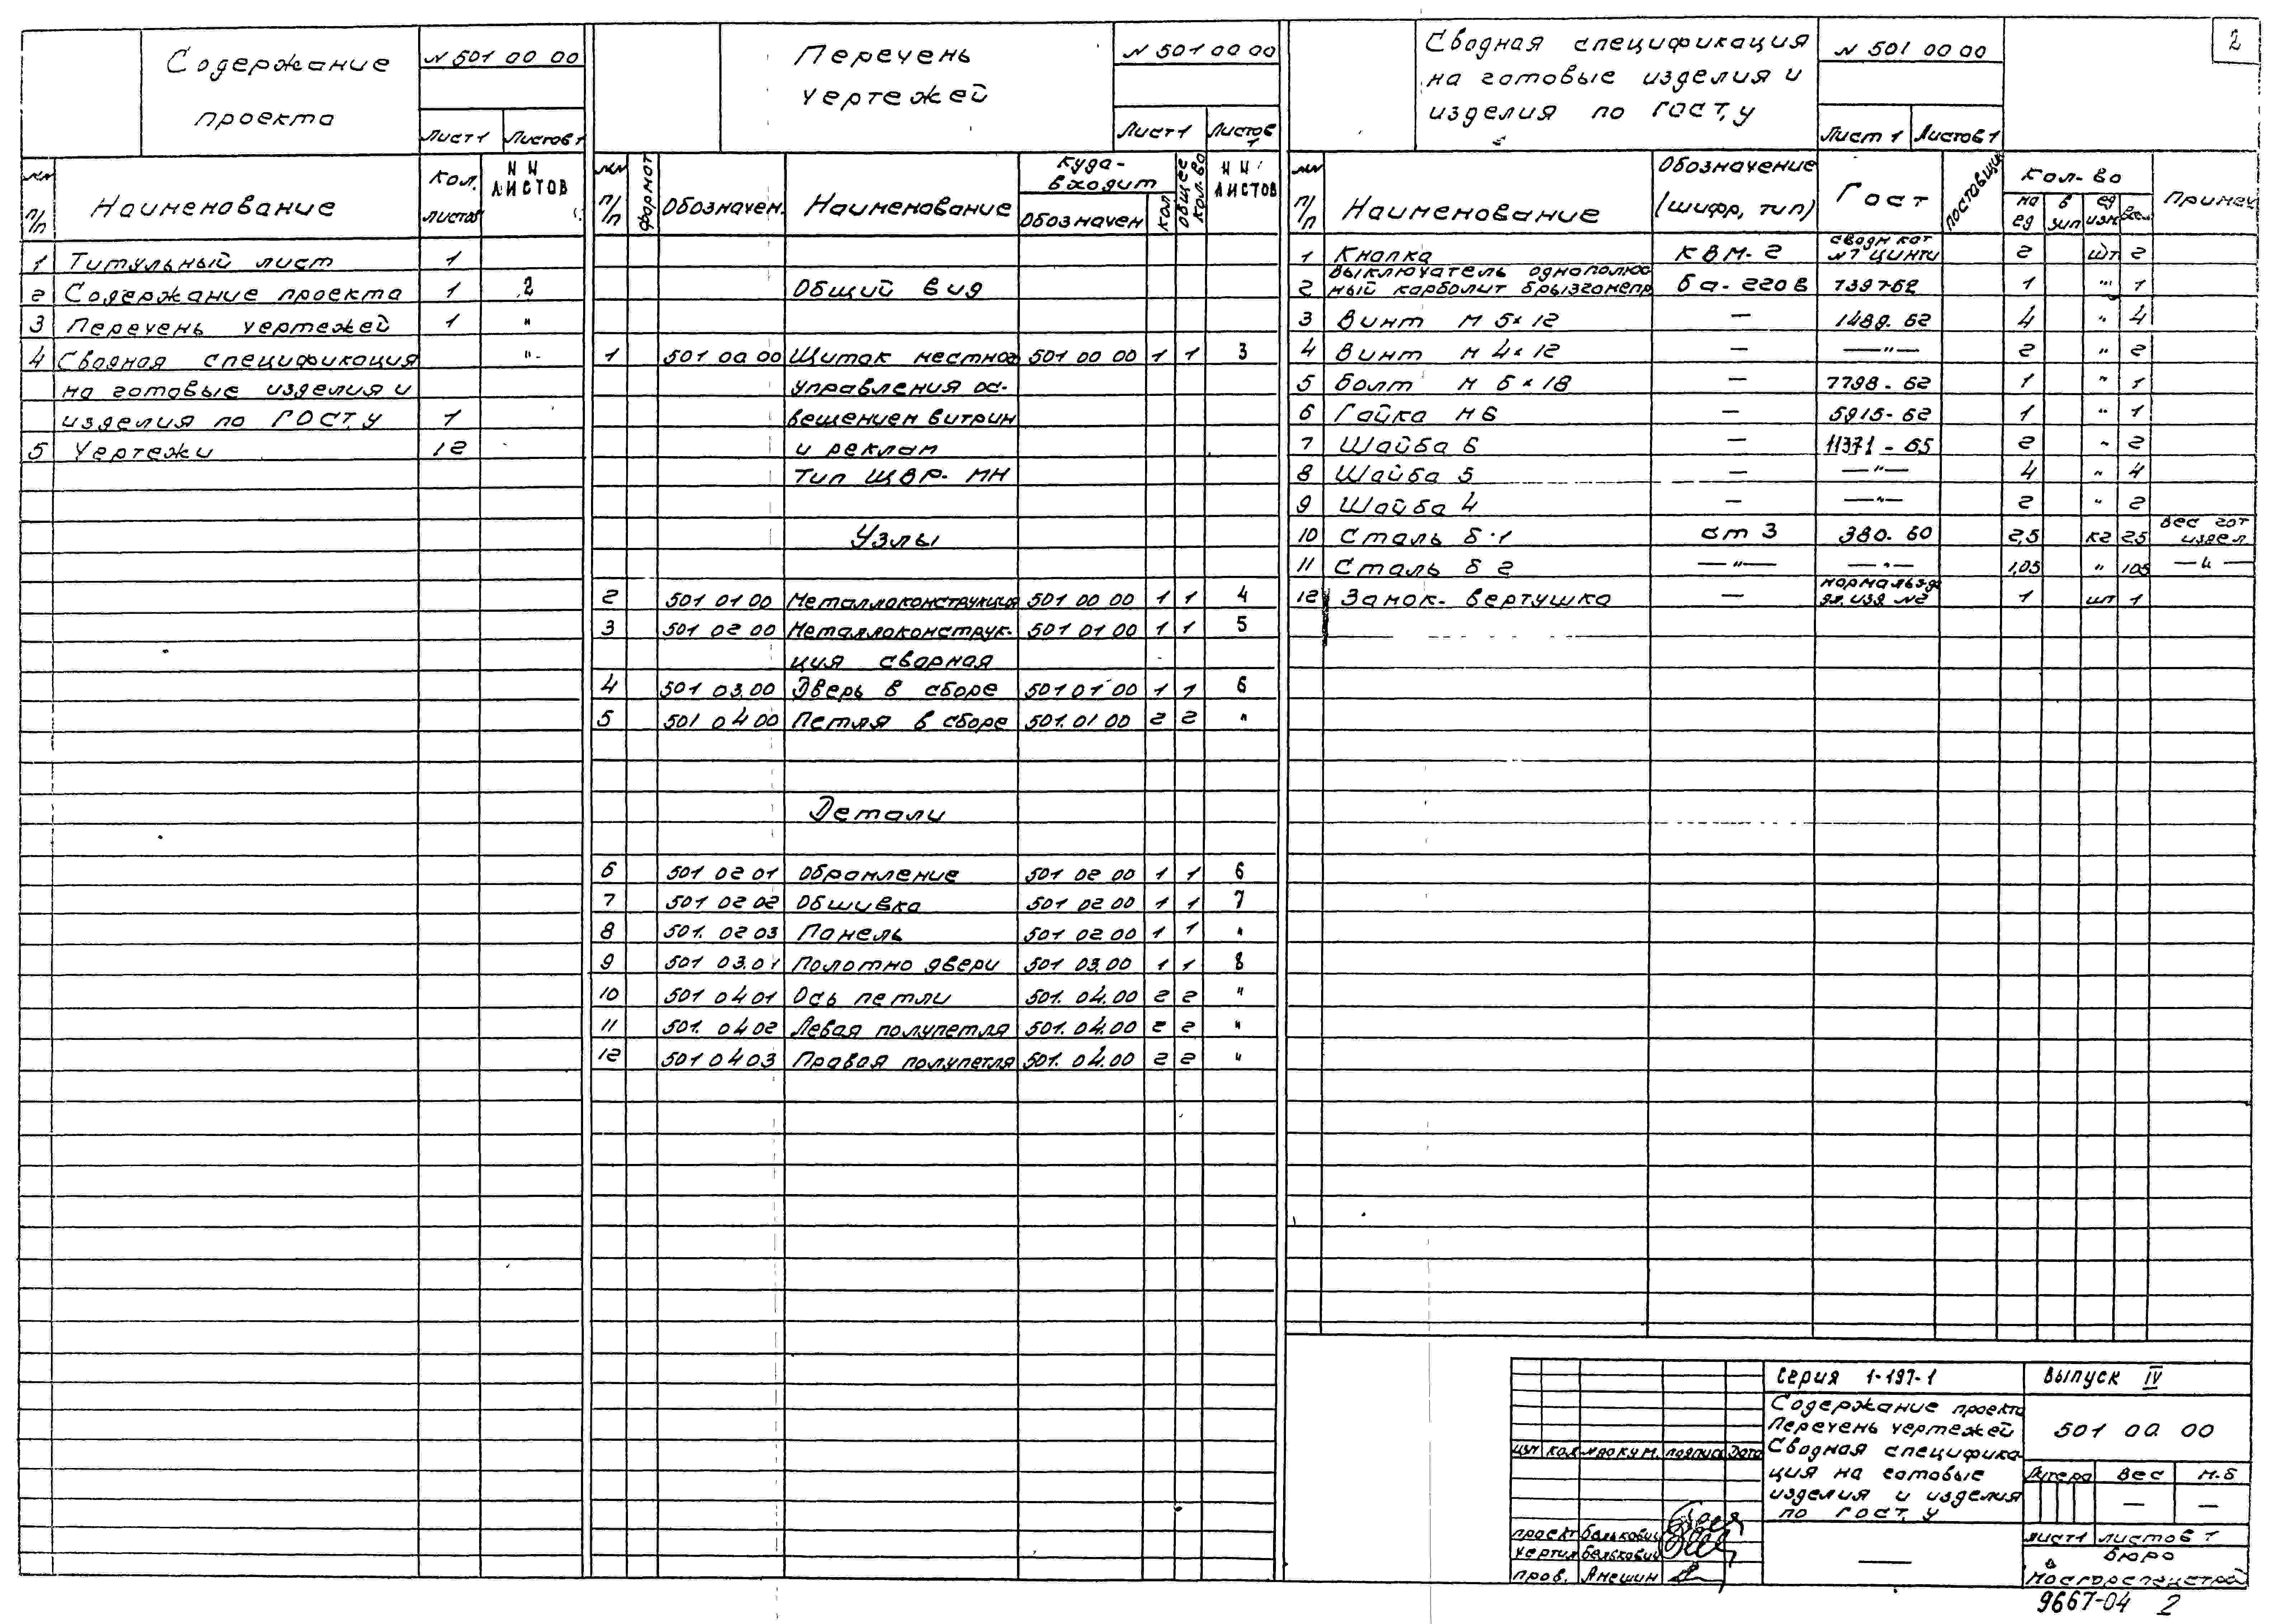 Содержание
проекта
N 501 00 00
Лист 1 Листов 1
NN п/п Наименование Кол. листов NN листов
1 Титульный лист 1
2 Содержание проекта 1 2
3 Перечень чертежей 1 "
4 Сводная спецификация "
на готовые изделия и
изделия по ГОСТ,у 1
5 Чертежи 12
Перечень
чертежей
N 501 00 00
Лист 1 Листов 1
NN п/п формат Обозначен. Наименование куда-входит Обозначен кол общее кол.во NN листов
Общий вид
1 501 00 00 Щиток местного 501 00 00 1 1 3
управления ос-
вещением витрин
и реклам
Тип ЩВР-МН
Узлы
2 501 01 00 Металлоконструкция 501 00 00 1 1 4
3 501 02 00 Металлоконструк- 501 01 00 1 1 5
ция сварная
4 501 03.00 Дверь в сборе 501 01 00 1 1 6
5 501 04 00 Петля в сборе 501.01 00 2 2 "
Детали
6 501 02 01 Обрамление 501 02 00 1 1 6
7 501 02 02 Обшивка 501 02 00 1 1 7
8 501. 02 03 Панель 501 02 00 1 1 "
9 501 03.01 Полотно двери 501 03.00 1 1 8
10 501 04 01 Ось петли 501. 04.00 2 2 "
11 501. 04 02 Левая полупетля 501. 04.00 2 2 "
12 501 04 03 Правая полупетля 501. 04.00 2 2 "
Сводная спецификация
на готовые изделия и
изделия по ГОСТ,у
N 501 00 00
Лист 1 Листов 1
2
NN п/п Наименование Обозначение (шифр, тип) Гост поставщик Кол-во на ед в зип ед изм Всего Примеч
1 Кнопка КВМ-2 сводн кат N7 ЦИНТИ 2 шт 2
2 Выключатель однополюс
ный карболит брызгонепр 6а-220в 7397-62 1 " 1
3 Винт М 5×12 — 1489-62 4 " 4
4 Винт М 4×12 — —"— 2 " 2
5 Болт М 6×18 — 7798-62 1 " 1
6 Гайка М6 — 5915-62 1 " 1
7 Шайба 6 — 11371-65 2 " 2
8 Шайба 5 — —"— 4 " 4
9 Шайба 4 — —"— 2 " 2
10 Сталь б·1 ст 3 380-60 2,5 кг 2,5 вес гот издел.
11 Сталь б 2 —"— —"— 1,05 " 1,05 —"—
12 Замок-вертушка — 1 шт 1
Серия 1-197-1 Выпуск IV
Содержание проекта
Перечень чертежей
Сводная специфика-
ция на готовые
изделия и изделия
по ГОСТ,у
501 00 00
изм кол №докум. подпись дата
Литера Вес М-б
— —
лист 1 листов 1
проект Балькович
чертил Балькович
пров. Анешин
—
бюро
Мосгорспецстрой
9667-04 2